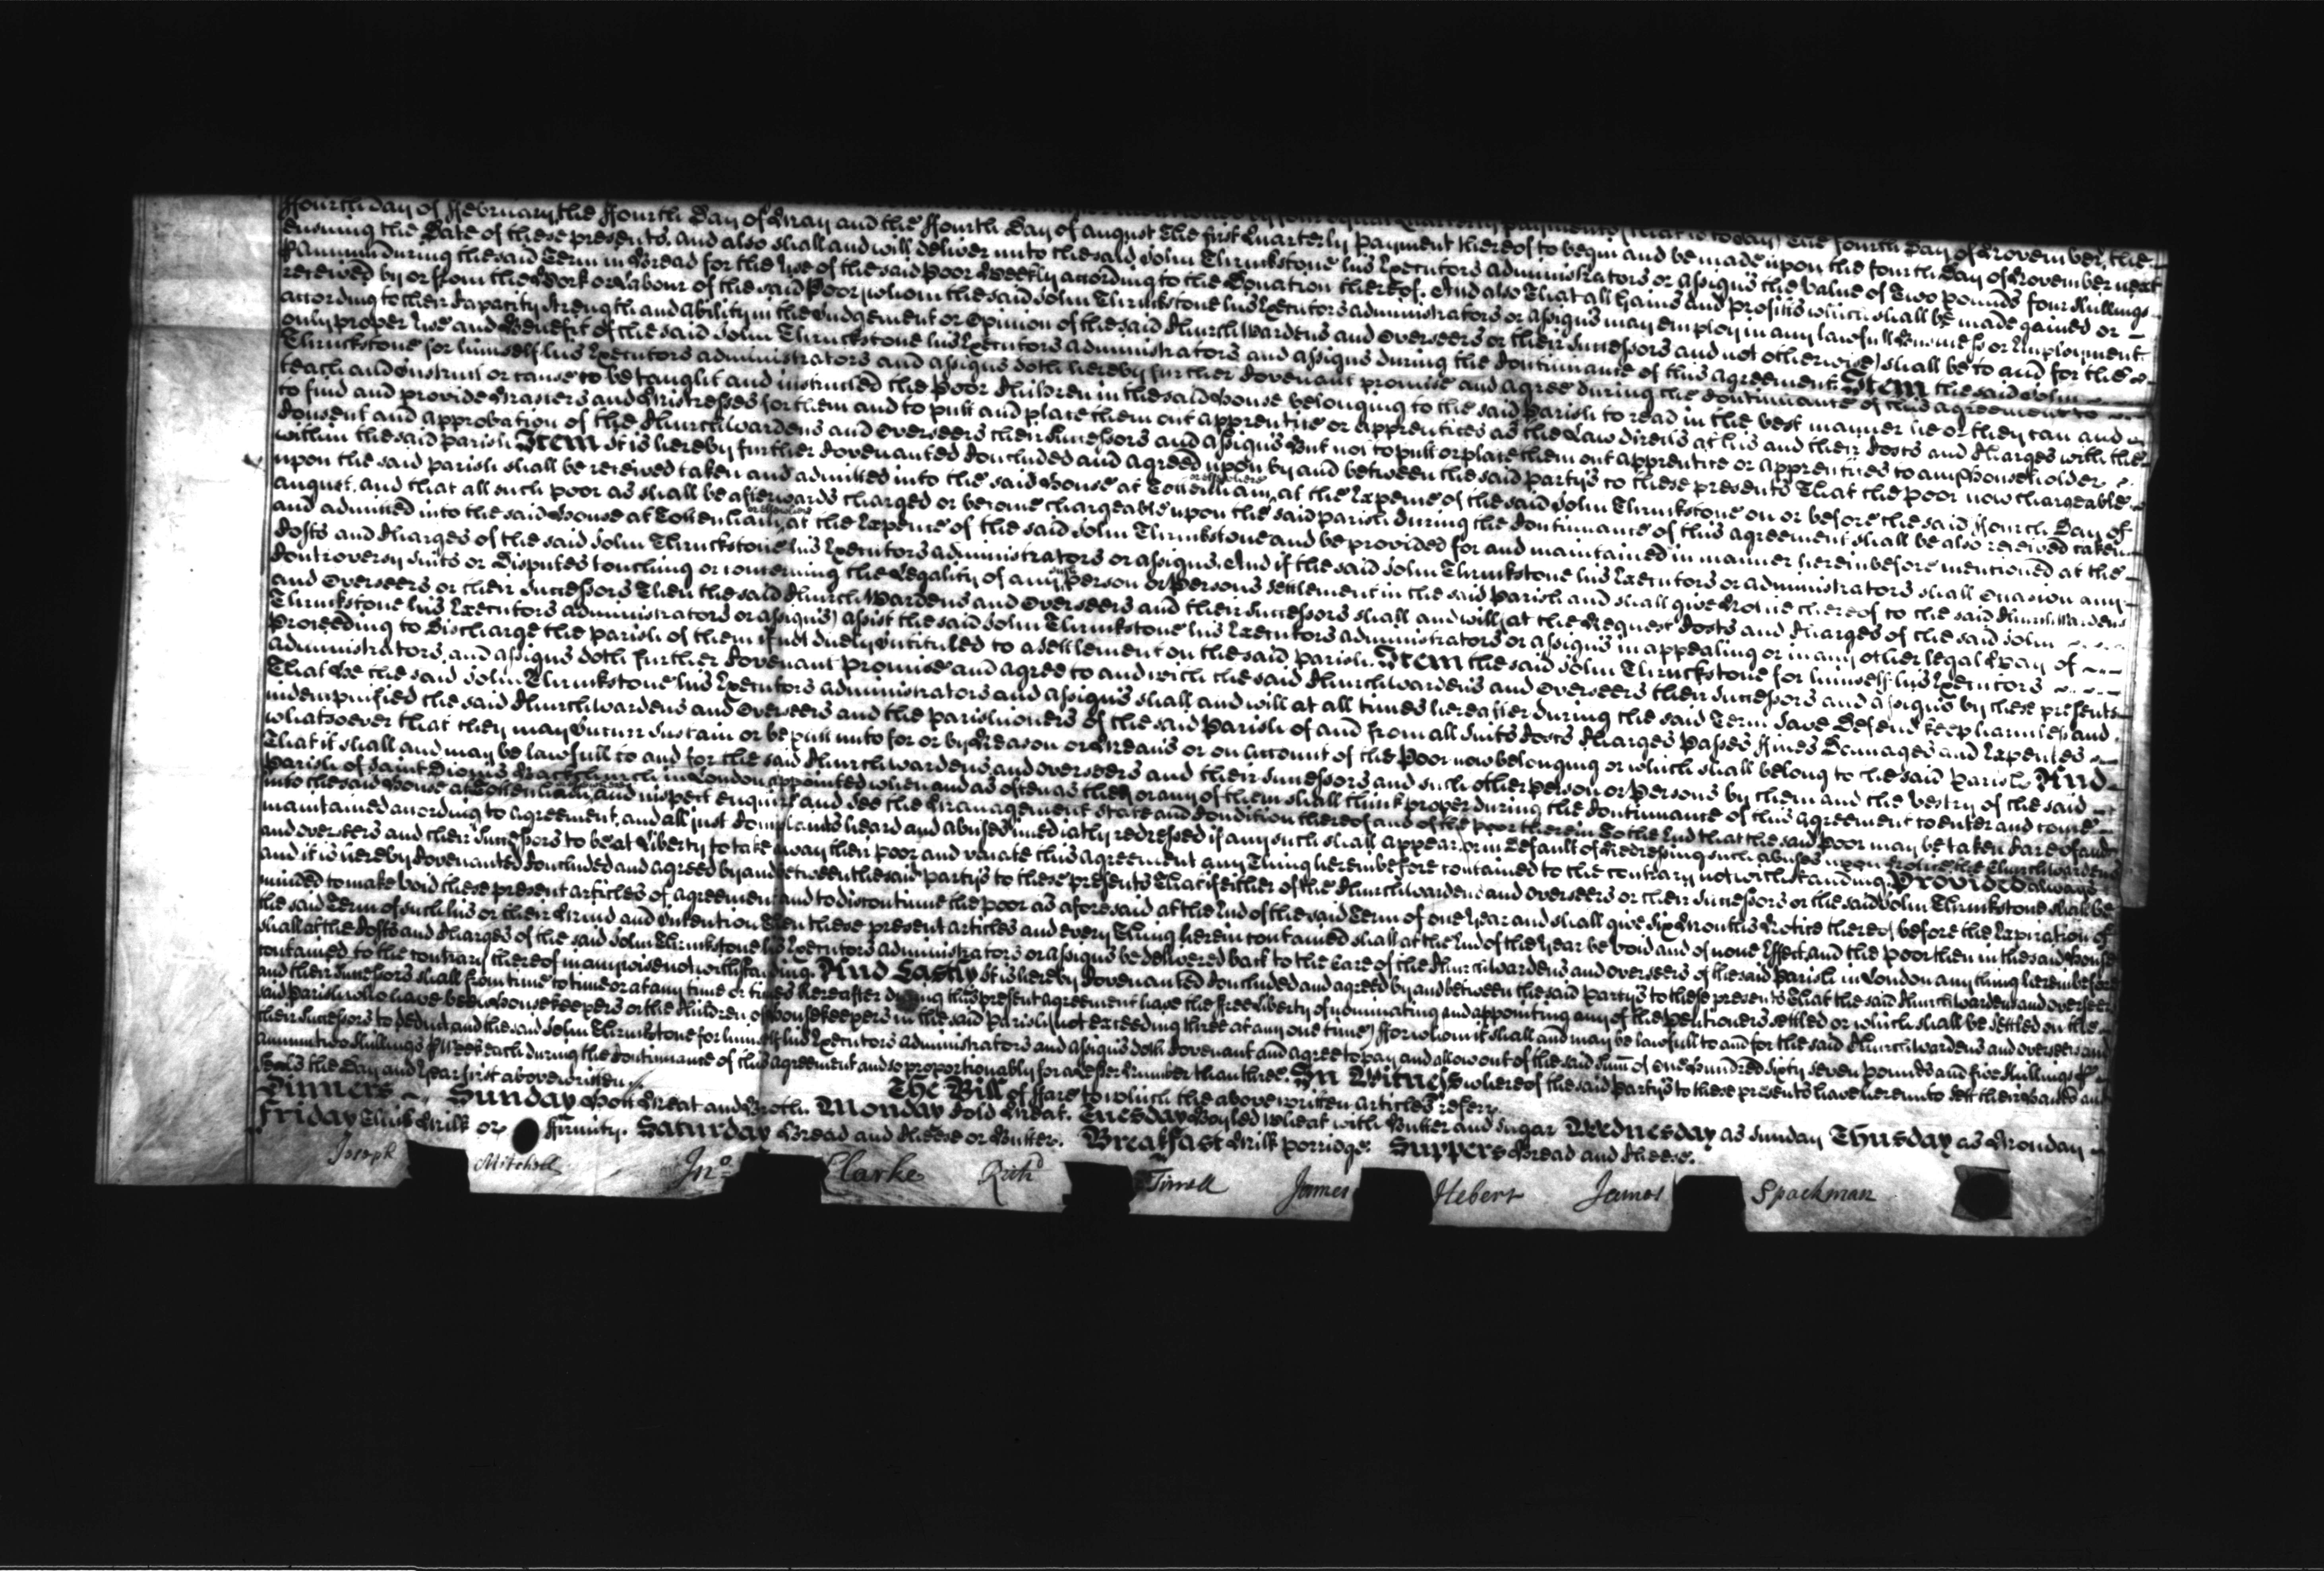 four equal Quarterly payments (that is to say) The fourth Day of November, the
ffourth day of ffebruary the ffourth Day of May and the ffourth Day of August The first Quarterly payment thereof to begin and be made upon the fourth Day of November next
Ensuing the Date of these presents. And also shall and will deliver unto the said John Thruckstone his Executors Administrators or assigns the value of Two pounds four shillings
P Annum during the said Term in Bread for the Use of the said Poor Weekly according to the Donation thereof. And also That all Gains and Profitts which shall be made gained or
received by or from the Work or Labour of the said Poor (whom the said John Thruckstone his Executors Administrators or assigns may employ in any lawfull Business or Employment
according to their Capacity Strength and Ability in the Judgement or Opinion of the said Church Wardens and Overseers or their Successors and not otherwise) shall be to and for the
only proper Use and Benefit of the said John Thruckstone his Executors Administrators and assigns during the Continuance of this agreement. Item the said John
Thruckstone for himself his Executors Administrators and assigns doth hereby further Covenant promise and agree during the Continuance of this agreement to
teach and Instruct or cause to be taught and instructed the Poor Children in the said House belonging to the said Parish to read in the best manner he or they can and
to find and provide Masters and Mistresses for them and to putt and place them out apprentice or apprentices as the Law directs at his and their Costs and Charges with the
Consent and approbation of the Churchwardens and Overseers their Successors and assigns But not to putt or place them out apprentice or apprentices to any Householder
within the said Parish. Item It is hereby further Covenanted Concluded and agreed upon by and between the said partys to these presents That the poor now chargeable
upon the said parish shall be received taken and admitted into the said House at Tottenham or elsewhere at the Expence of the said John Thruckstone on or before the said ffourth Day of
August, and that all such poor as shall be afterwards charged or become chargeable upon the said parish during the Continuance of this agreement shall be also received taken
and admitted into the said House at Tottenham or elsewhere at the Expence of the said John Thruckstone and be provided for and maintained in manner hereinbefore mentioned at the
Costs and Charges of the said John Thruckstone his Executors Administrators or assigns. And if the said John Thruckstone his Executors or administrators shall Occasion any
Controversy Suits or Disputes touching or concerning the Legality of any such Person or Persons settlement in the said Parish and shall give Notice thereof to the said Church Wardens
and Overseers or their Successors Then the said Church Wardens and Overseers and their Successors shall and will (at the Request Costs and Charges of the said John
Thruckstone his Executors Administrators or assigns) assist the said John Thruckstone his Executors Administrators or assigns in appealing or in any other legal Way of
Proceeding to Discharge the parish of them if not duely Entituled to a settlement on the said parish. Item the said John Thruckstone for himself his Executors
administrators, and assigns doth further Covenant Promise and agree to and with the said Churchwardens and Overseers their Successors and assigns by these presents
That he the said John Thruckstone his Executors Administrators and assigns shall and will at all times hereafter during the said Term Save Defend keep harmless and
indempnified the said Churchwardens and Overseers and the parishioners of the said Parish of and from all Suits Costs Charges Passes ffines Damages and Expences
whatsoever that they may Incurr Sustain or be putt unto for or by Reason or Means or on account of the Poor now belonging or which shall belong to the said Parish. And
That it shall and may be lawfull to and for the said Churchwardens and overseers and their Successors and such other Person or Persons by them and the Vestry of the said
Parish of Saint Dionis Backchurch in London appointed when and as often as they or any of them shall think proper during the Continuance of this agreement to enter and come
into the said House at Tottenham or elsewhere and inspect enquire and see the Management State and Condition thereof and of the poor therein To the End that the said Poor may be taken Care of and
maintained according to agreement, and all just Complaints heard and abuses imediatly redressed if any such shall appear, or in Default of Redressing such abuses upon Notice the Churchwardens
and overseers and their Successors to be at Liberty to take away their poor and vacate this agreement any Thing hereinbefore contained to the contrary notwithstanding. Provided always
and it is hereby Covenanted Concluded and agreed by and between the said partys to these presents That if either of the Churchwardens and overseers or their Successors or the said John Thruckstone shall be
minded to make void these present articles of agreement and to discontinue the poor as aforesaid at the End of the said Term of one Year and shall give Six Months Notice thereof before the Expiration of
the said Term of such his or their Mind and Intention Then these present articles and every Thing herein contained shall at the End of the Year be void and of none Effect, and the poor then in the said House
shall at the Costs and Charges of the said John Thruckstone his Executors Administrators or assigns be delivered back to the Care of the Churchwardens and overseers of the said Parish in London any thing hereinbefore
contained to the contrary thereof in any wise notwithstanding. And Lastly It is hereby Covenanted Concluded and agreed by and between the said partys to these presents That the said Churchwardens and overseers
and their Successors shall from time to time or at any time or times hereafter during this present agreement have the free Liberty of nominating and appointing any of the Pentioners settled or which shall be settled on the
said Parish who have been Housekeepers or the Children of Housekeepers in the said Parish (not exceeding three at any one time) ffor whom it shall and may be lawfull to and for the said Churchwardens and overseers and
their Successors to deduct, and the said John Thruckstone for himself his Executors Administrators and assigns doth Covenant and agree to pay and allow out of the said Sum of One Hundred Sixty seven pounds and five shillings P
annum two Shillings P Week each during the Continuance of this agreement and so proportionably for a lesser Number than three. In Witness whereof the said partys to these presents have hereunto sett their Hands and
Seals the Day and Year first above written.
The Bill of ffare to which the above written articles referr.
Dinners Sunday Hott Meat and Broth. Monday Cold Meat. Tuesday Boyled Wheat with Butter and Sugar Wednesday as Sunday Thusday as Monday
Friday Thick Milk or ffirmity. Saturday Bread and Cheese or Butter. Breakfast Milk porridge. Suppers Bread and Cheese.
Joseph Mitchell Jno. Clarke Richd Tirrell James Hebert James Spackman